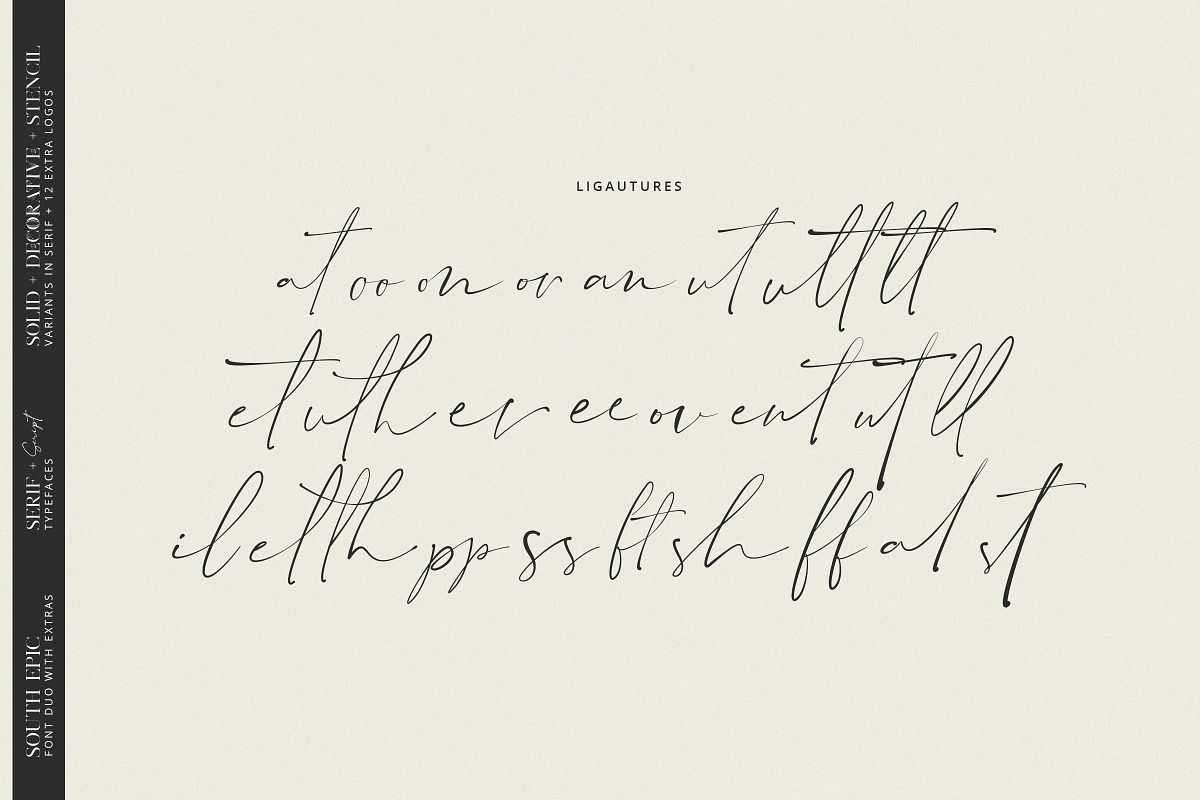 LIGAUTURES
at oo on or an ut utt tt
et uth er ee ov ent wt ll
il ett th pp ss ft sh ff al st
SOLID + DECORATIVE + STENCIL
VARIANTS IN SERIF + 12 EXTRA LOGOS
SERIF + Script
TYPEFACES
SOUTH EPIC
FONT DUO WITH EXTRAS